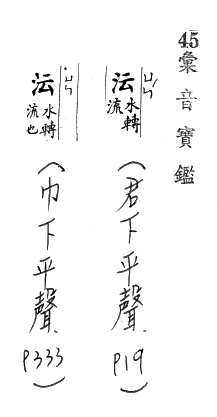 45
彙音寶鑑
沄 水轉流
(君下平聲 P19)
沄 水轉流也
(巾下平聲. P333)